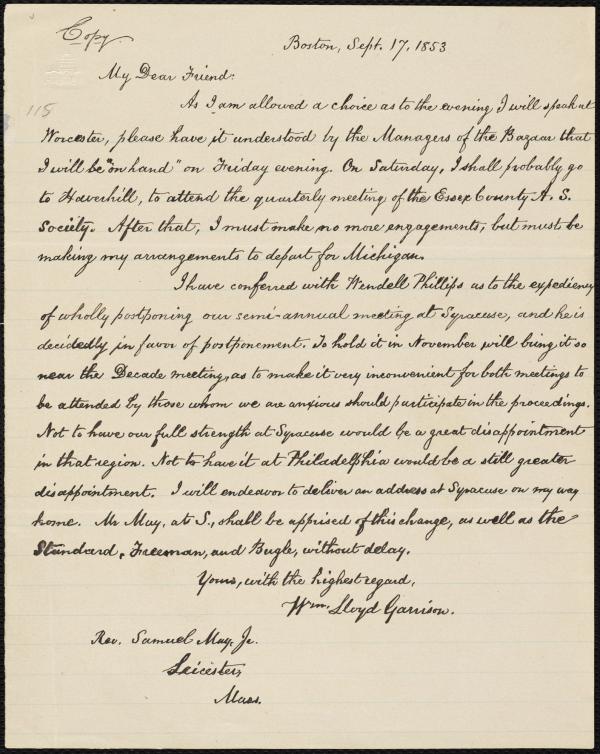 Copy.
Boston, Sept. 17, 1853
My Dear Friend:
115
As I am allowed a choice as to the evening I will speak at
Worcester, please have it understood by the Managers of the Bazaar that
I will be "on hand" on Friday evening. On Saturday, I shall probably go
to Haverhill, to attend the quarterly meeting of the Essex County A. S.
Society. After that, I must make no more engagements, but must be
making my arrangements to depart for Michigan.
I have conferred with Wendell Phillips as to the expediency
of wholly postponing our semi-annual meeting at Syracuse, and he is
decidedly in favor of postponement. To hold it in November will bring it so
near the Decade meeting, as to make it very inconvenient for both meetings to
be attended by those whom we are anxious should participate in the proceedings.
Not to have our full strength at Syracuse would be a great disappointment
in that region. Not to have it at Philadelphia would be a still greater
disappointment. I will endeavor to deliver an address at Syracuse on my way
home. Mr May, at S., shall be apprised of this change, as well as the
Standard, Freeman, and Bugle, without delay.
Yours, with the highest regard,
Wm. Lloyd Garrison.
Rev. Samuel May, Jr.
Leicester,
Mass.